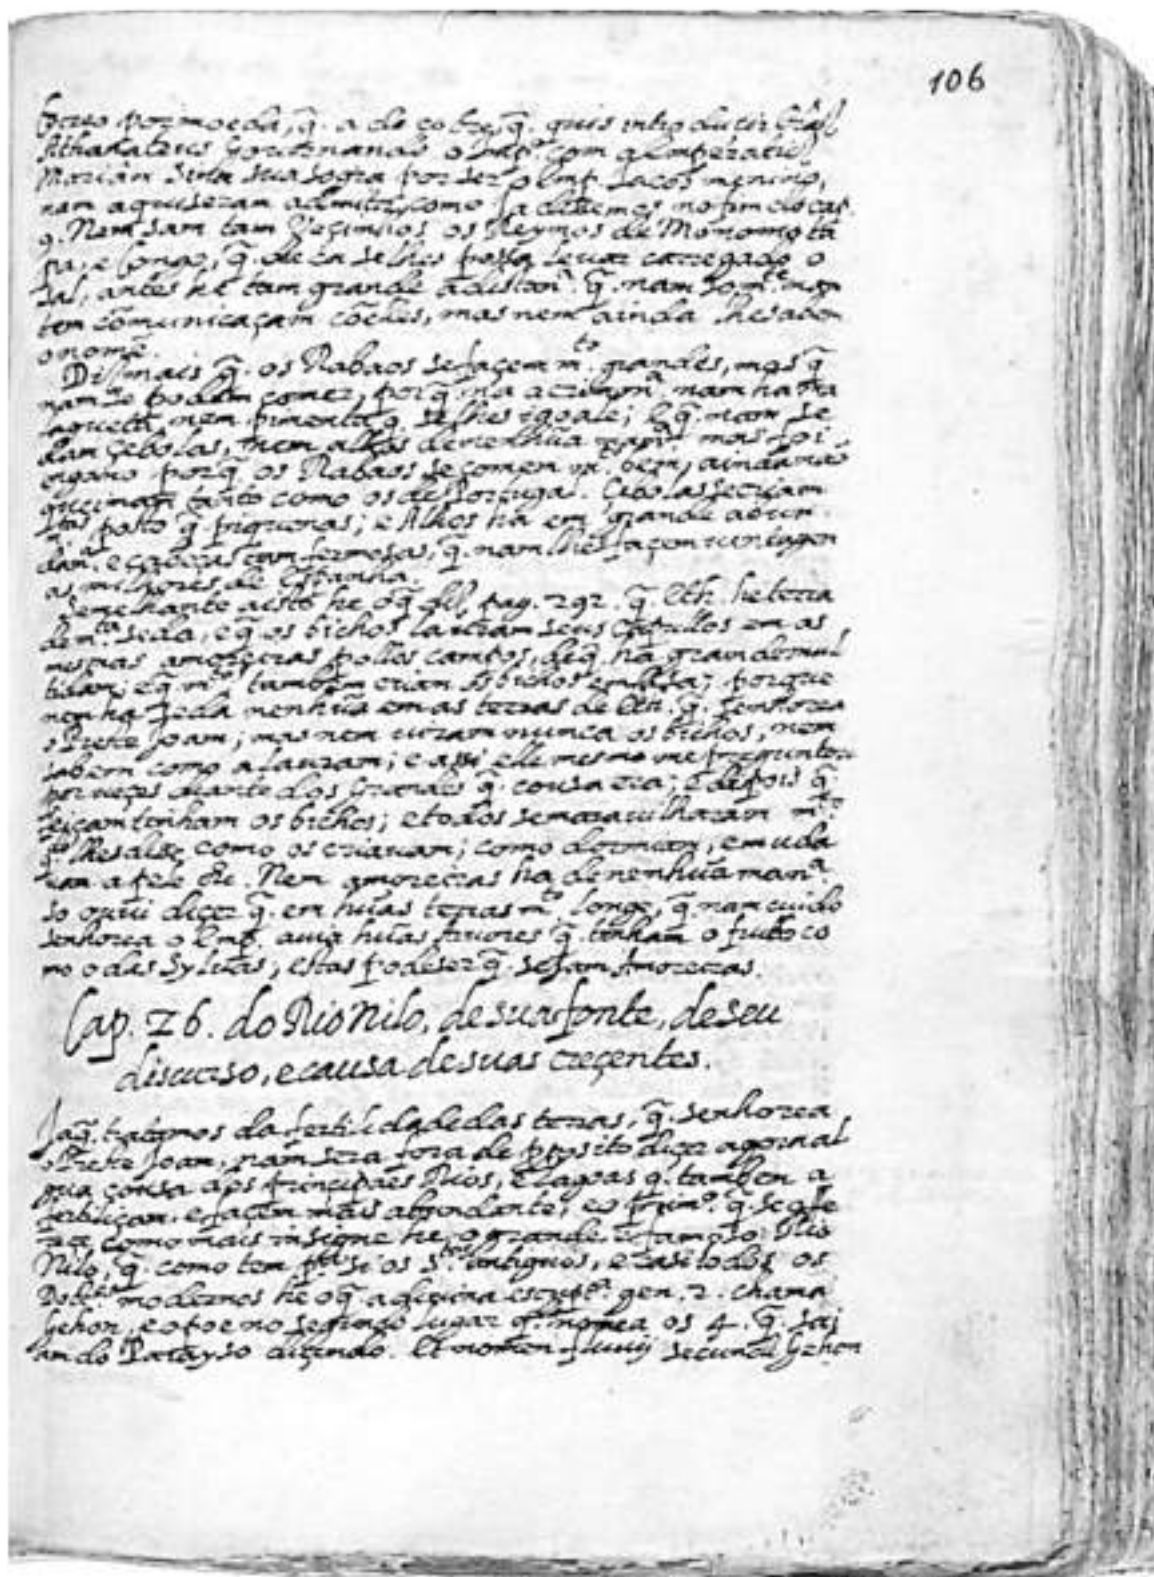 106
por moeda, q̃. a de cobre, q̃. quis introduçir
Athanateus o Emp.or com a Emperatriz
Mariam Sina sua sogra por ser o Emp. Jacob menino,
nam a quiseram admitir, como ja dissemos no fim do cap.
9. Nem sam tam veçinhos os Reynos de Monomota
pa, e Congo, q̃. de ca se lhes possa levar carregado o
sal, antes he tam grande a distan.ª q̃. nam som.te nam
tem cõmunicaçam cõ elles, mas nem ainda lhe sabem
o nome.
Diz mais q̃. os Rabaõs se façem m.to grandes, mas q̃
nam se podem comer, porq̃ na acrimon.ª nam ha ma
lagueta, nem pimenta q̃. se lhes iguale; E q̃. nam se
dam çebolas, nem alhos de nenhũa man.ra mas foi
engano porq̃ os Rabaõs se comem m.to bem, ainda nam
queimam tanto como os de Portugal. Cebolas se criam
m.tas posto q̃. piquenas; e Alhos ha em grande abun
dan.ª e cabeças tam fermosas, q̃. nam lhes façem vantagem
as milhores de Espanha.
Semelhante a isto he o q̃ diz, pag. 292. q̃. Eth. he terra
de m.ta seda, e q̃ os bichos lavram seus capillos em as
mesmas amoreiras pollos campos, de q̃. ha grande mul
tidam; e q̃. m.tos tambem criam os bichos em casa; porque
nem ha seda nenhũa em as terras de Eth. q̃. senhorea
o Preste Joam; mas nem viram nunca os bichos, nem
sabem como a lauram; e assi elle mesmo me preguntou
por veçes diante dos Grandes q̃. cousa era; e depois q̃
feiçam tinham os bichos; e todos se maravilharam m.to
q.do lhes disse como os criavam; como dormiam, e muda
vam a pele &c. Nem amoreiras ha de nenhũa man.ra
so ouvi diçer q̃. em hũas terras m.to longe, q̃. nam cuido
senhorea o Emp. avia hũas Arvores q̃. tinham o fruito co
mo o das Sylvas; estas pode ser q̃. sejam Amoreiras.
Cap. 26. do Rio Nilo, de sua fonte, de seu
discurso, e causa de suas creçentes.
Ja q̃. tratamos da fertilidade das terras, q̃. senhorea
o Preste Joam, nam sera fora de pposito diçer agora al
gua cousa dos principaes Rios, e Lagoas q̃. tambem a
fertiliçam. e façem mais abundante; e o prim.ro q̃. se ofe
reçe como mais insigne he, o grande e famoso Rio
Nilo, q̃. como tem p.ra si os S.tos antiguos, e casi todos os
Dout.res modernos he o q̃ a divina escript.ra gen. 2. chama
Gehon, e o poe no segundo lugar q.do nomea os 4. q̃. sai
am do Parayso diçendo. Et nomen fluvij secundi Gehon